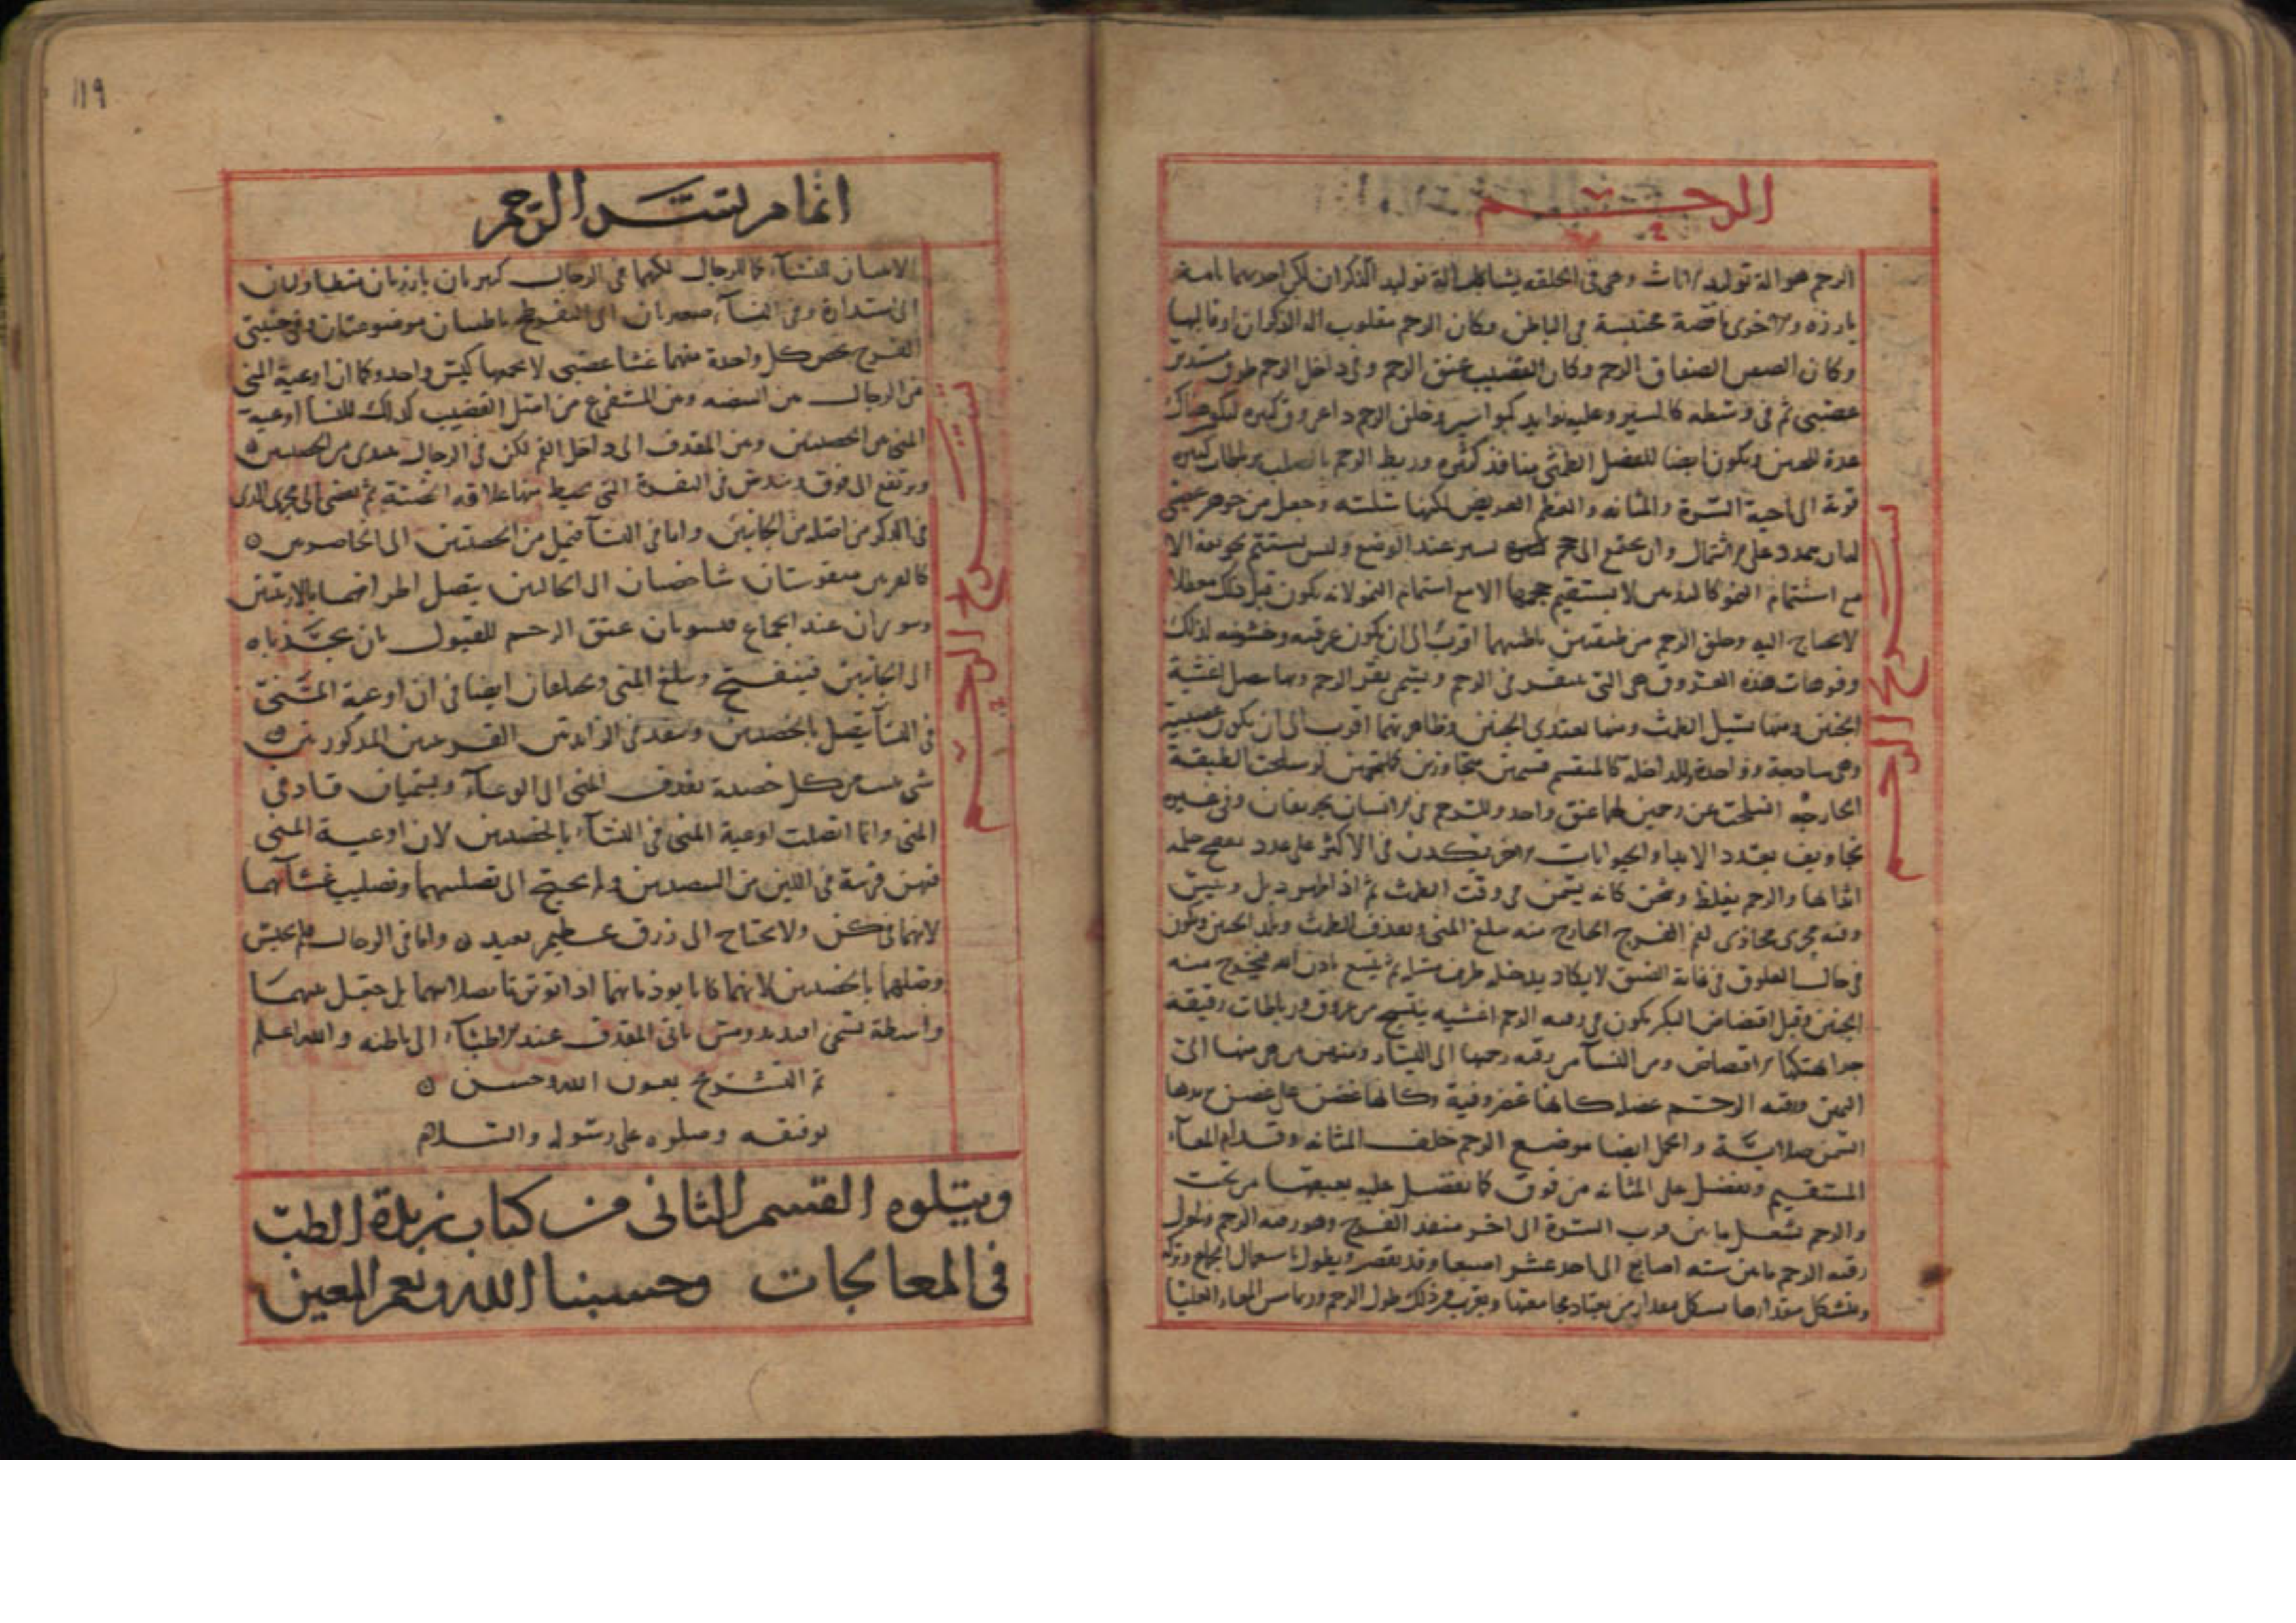 الرحم
الرحم هو الة توليد الاناث وهى فى الخلقه يشاكل الة توليد الذكران لكن احديهما تامة
بارزه والاخرى ناقصة محتبسة فى الباطن وكان الرحم مقلوب الة الذكران او قالبها
وكان الصفن الصفاق الرحم وكان القضيب عنق الرحم وفى داخل الرحم طوق مستدير
عصبى ثم فى وسطه كالسير وعليه زوايد كبواسير وخلق الرحم ذا عروق كثيره ليكون هناك
عدة للجنين ويكون ايضا للفضل الطمثى منافذ كثيره وربط الرحم بالصلب برباطات كثيره
قوية الى ناحية السرة والمثانه والعظم العريض لكنها سلسة وجعل من جوهر عصبى
له ان يتمدد على الاشتمال وان يجتمع الى حجم يسير عند الوضع وليس يستتم تجويفه الا
مع استتمام النمو كالثديين لا يستقيم حجمها الا مع استتمام النمو لانه يكون قبل ذلك معطلا
لا يحتاج اليه وخلق الرحم من طبقتين باطنهما اقرب الى ان يكون عرقيه وخشونته لذلك
وفوهات هذه العروق هى التى تنقر فى الرحم ويسمى نقر الرحم وبها يتصل اغشية
الجنين ومنها يسيل الطمث ومنها يغتذى الجنين وظاهرتهما اقرب الى ان يكون عصبية
وهى ساذجة وواحدة والداخله كالمنقسم قسمين متجاورين كالملتحمين لو سلخت الطبقة
الخارجه انسلخت عن رحمين لهما عنق واحد وللرحم فى الانسان تجويفان وفى غيره
تجاويف بعدد الاثدا والحيوانات
اثدائها والرحم يغلظ ويثخن كانه يسمن فى وقت الطمث ثم اذا طهر ذبل ويبس
وفيه مجرى محاذى لفم الفرج الخارج منه يبلغ المنى ويقذف الطمث ويلد الجنين ويكون
فى حالة العلوق فى غاية الضيق لا يكاد يدخله طرف ميل ثم يتسع باذن الله فيخرج منه
الجنين وقبل افتضاض البكر يكون فى رقبه الرحم اغشيه ينتسج من عروق ورباطات رقيقة
جدا يهتكها الافتضاض ومن النسا من رقبه رحمها الى اليسار ومنهن من هى منها الى
اليمين ورقبه الرحم عضليه كانها غضروفية وكانها غضن على غضن يزيدها
السمن صلابة والحمل ايضا موضع الرحم خلف المثانه وقدام المعآء
المستقيم ويفضل على المثانه من فوق كما يفضل عليه بعنقها من تحت
والرحم يشغل ما بين قرب السرة الى اخر منفذ الفرج وهو رقبه الرحم وطول
رقبه الرحم ما بين سته اصابع الى احد عشر اصبعا وقد يقصر ويطول باستعمال الجماع وتركه
ويتشكل مقدارها بشكل مقدار من يعتاد مجامعتها ويقرب من ذلك طول الرحم وربما مس المعاء العليا
تشريح الرحم
١١٩
اتمام تشريح الرحم
الانثيان للنسآء كما للرجال لكنهما فى الرجال كبيرتان بارزتان متطاولتان
الى استدارة وفى النسآء صغيرتان الى التفرطح باطنتان موضوعتان فى جنبتى
الفرج يخص كل واحدة منهما غشا عصبى لا يجمعهما كيس واحد وكما ان اوعية المنى
فى الرجال بين البيضه وبين المستفرغ من اصل القضيب كذلك للنسا اوعية
المنى بين الخصيتين وبين المقذف الى داخل الفم لكن فى الرجال يبتدى من الخصيتين
ويرتفع الى فوق ويندس فى النقرة التى ينحط منها علاقة الخصية ثم يفضى الى مجرى الذى
فى الذكر من اصله من الجانبين واما فى النسآ فيميل من الخصيتين الى الخاصرتين
كالقرنين مقوستان شاخصتان الى الحالبين يتصل اطرافهما بالاربتين
ويتوتران عند الجماع فيسويان عنق الرحم للقبول بان يجذباه
الى الجانبين فينفتح ويبلع المنى ويختلفان ايضا فى ان اوعية المنى
فى النسآ يتصل بالخصيتين وينفذ فى الزايدتين القرنيتين المذكورتين
شى ينبت من كل خصية يقذف المنى الى الوعآء ويسميان قاذفى
المنى وانما اتصلت اوعية المنى فى النسآء بالخصيتين لان اوعية المنى
فيهن قريبة فى اللين من البيضتين ولم يحتج الى تصلبهما وتصليب غشآئهما
لانهما فى كن ولا يحتاج الى زرق عظيم بعيد واما فى الرجال فلم يحسن
وصلهما بالخصيتين لانهما كانا يوذيانهما اذا توترتا بصلابتهما بل جعل بينهما
واسطة تسمى افيديدومس ياتى المقذف عند الاطبآء الى باطنه والله اعلم
تم التشريح بعون الله وحسن
توفيقه وصلوه على رسوله والسلام
تشريح الرحم
ويتلوه القسم الثانى من كتاب زبدة الطب
فى المعالجات وحسبنا الله ونعم المعين